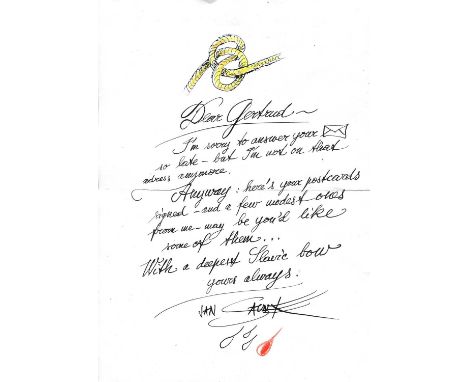 Dear Gertrud ~
I'm sorry to answer your
so late - but I'm not on that
adress anymore.
Anyway : here's your postcards
signed - and a few modest ones
from me - may be you'd like
some of them...
With a deepest Slavic bow
yours always.
JAN